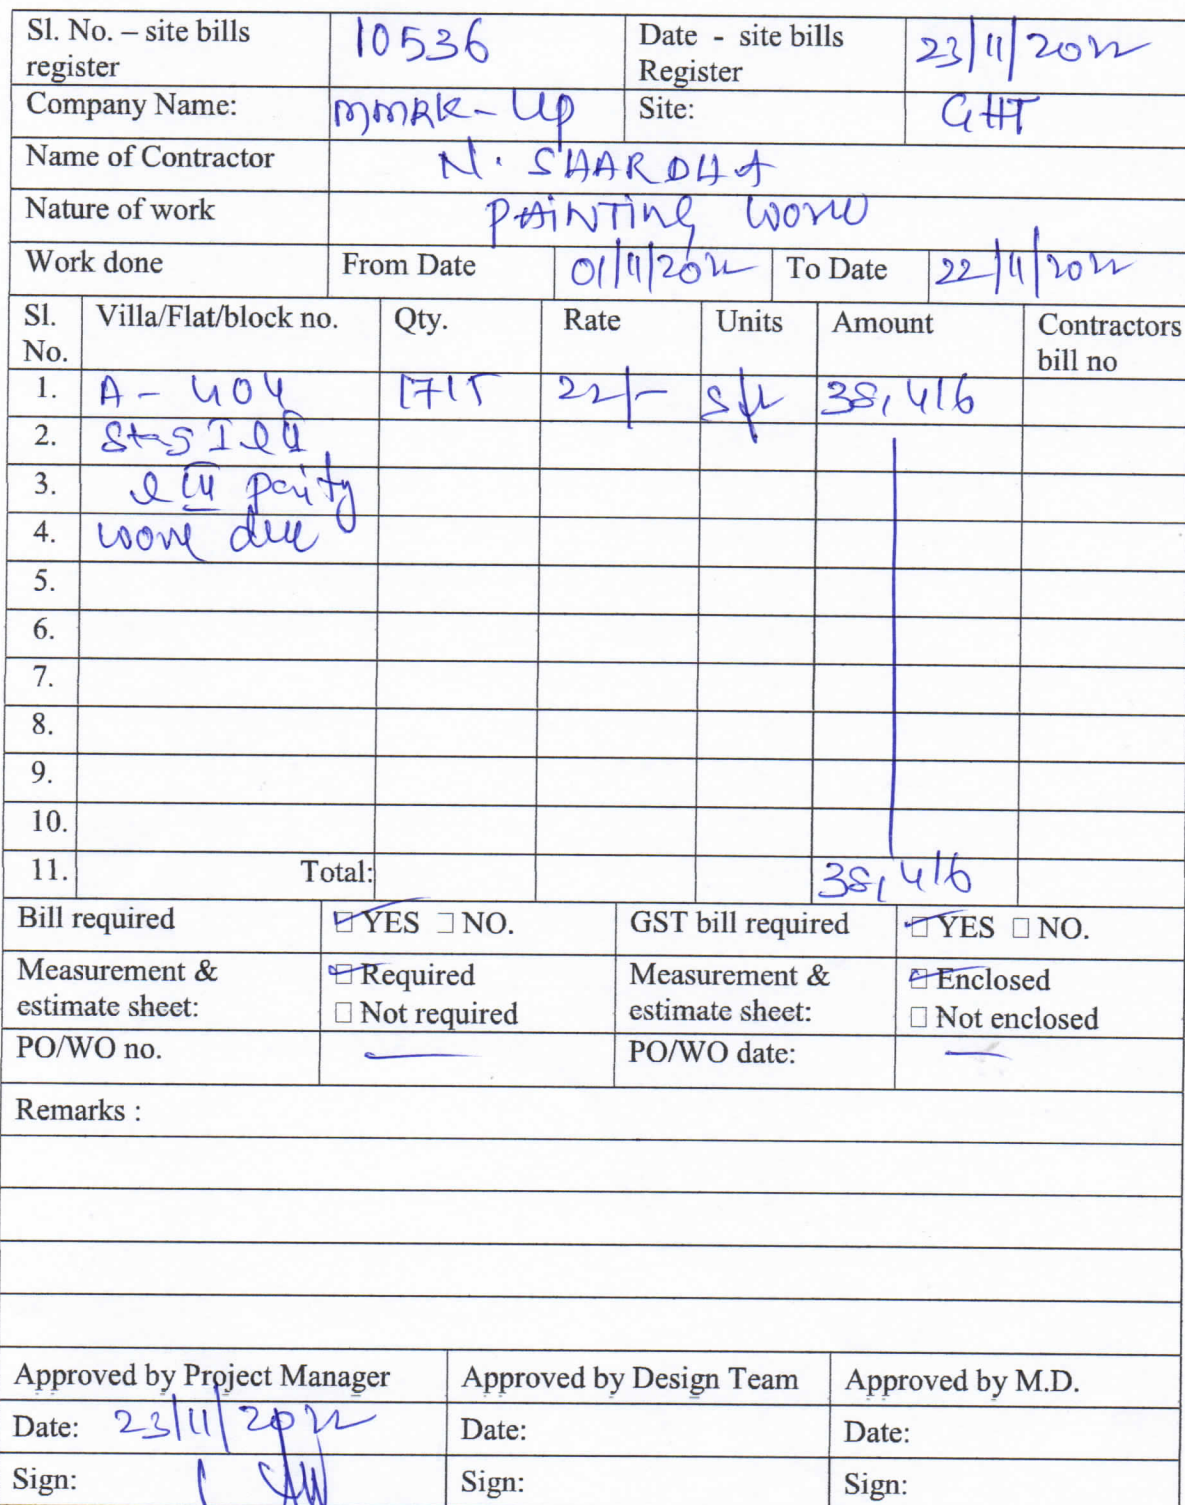 Sl. No. – site bills register 10536 Date - site bills Register 23/11/2022
Company Name: MMRK-UP Site: GHT
Name of Contractor N. SHARDHA
Nature of work PAINTING WORK
Work done From Date 01/11/2022 To Date 22/11/2022
Sl. No. Villa/Flat/block no. Qty. Rate Units Amount Contractors bill no
1. A - 404 1715 22/- sft 38,416
2.
3.
4. work
5.
6.
7.
8.
9.
10.
11. Total: 38,416
Bill required YES NO. GST bill required YES NO.
Measurement & estimate sheet: Required Not required Measurement & estimate sheet: Enclosed Not enclosed
PO/WO no. — PO/WO date: —
Remarks :
Approved by Project Manager Approved by Design Team Approved by M.D.
Date: 23/11/2022 Date: Date:
Sign: Sign: Sign: